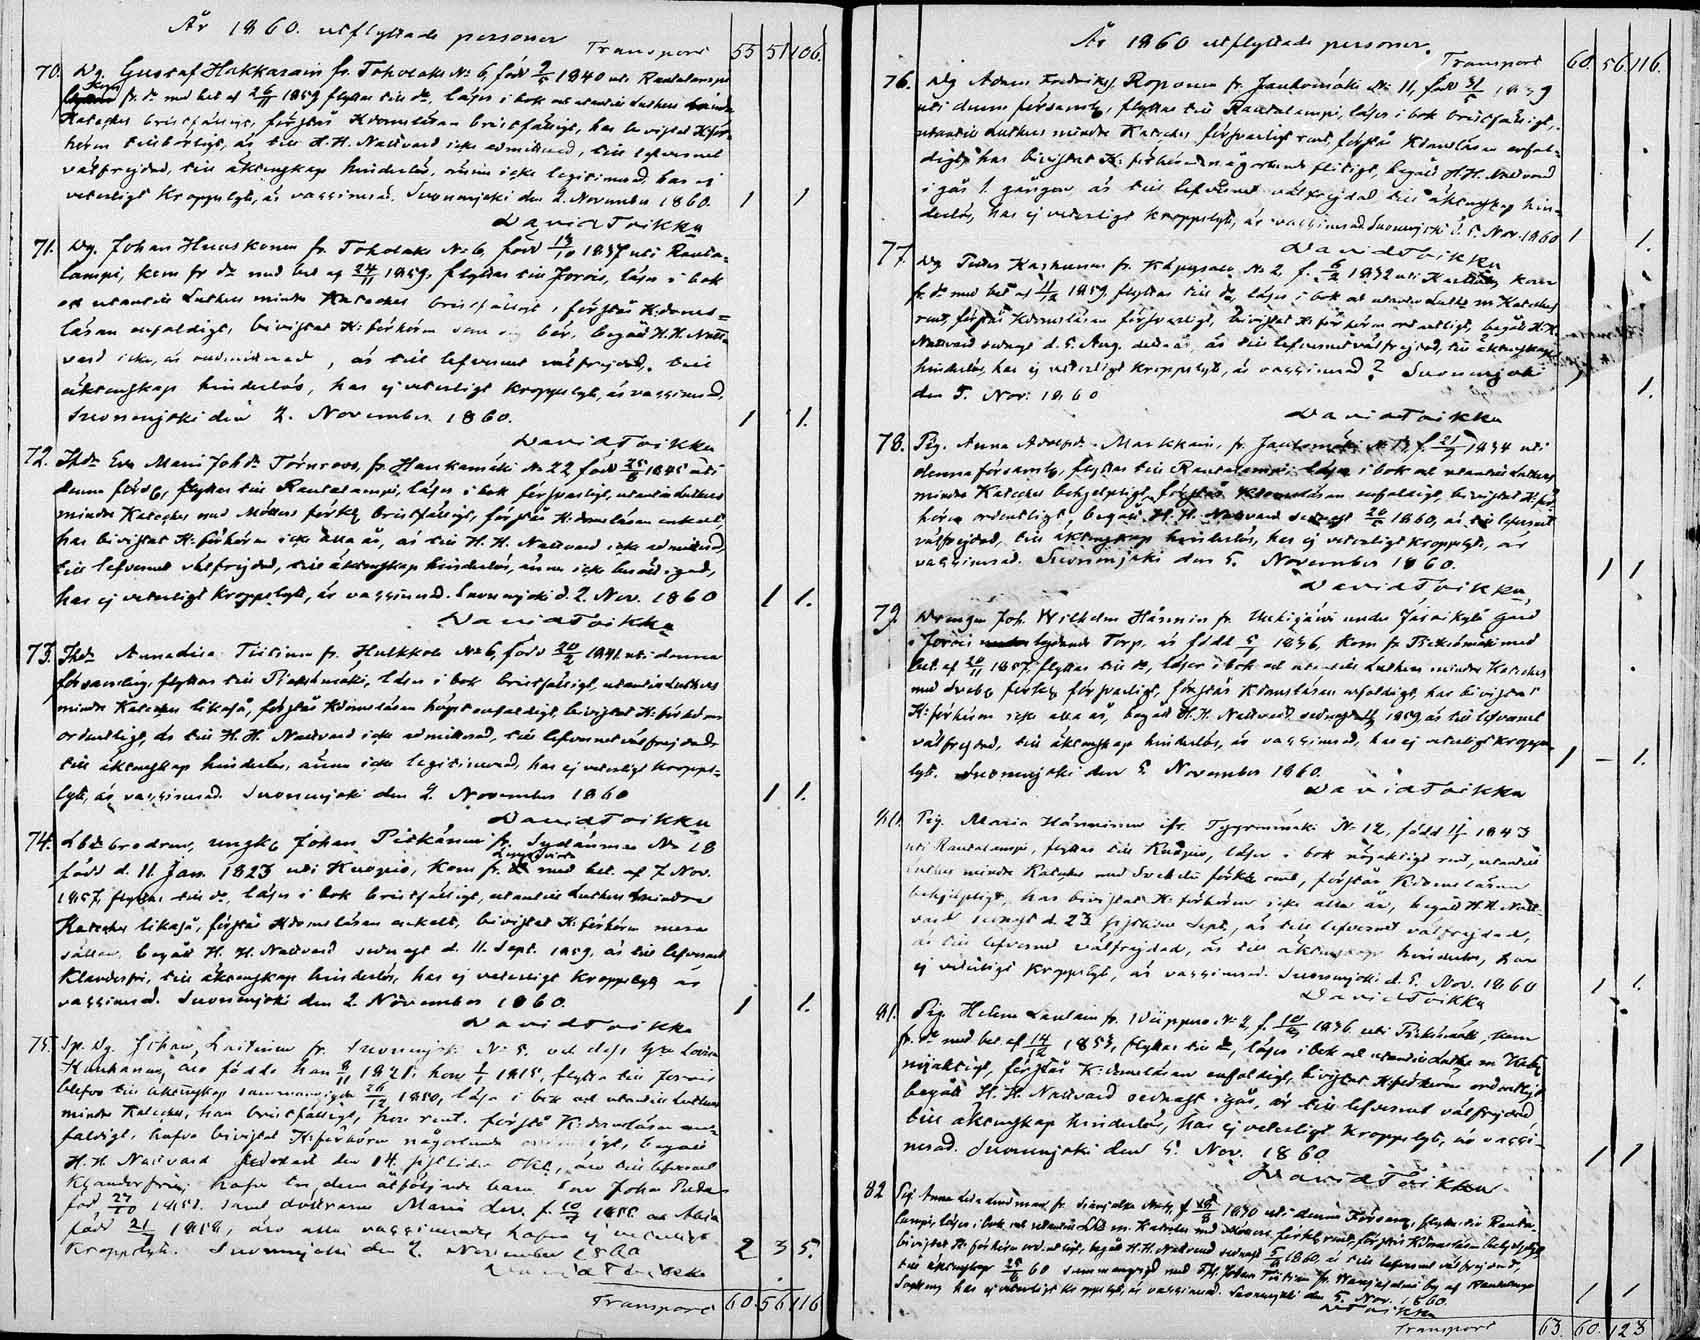 År 1860. utflyttade personer
Transport 55 51 106.
70. Dg. Gustaf Hakkarain fr. Toholaks No 6, född 2/5 1840 uti Rautalampi
kom fr. do med bet af 26/11 1859 flyttar till do, läser i bok och utantill Luthers mindre
Kateches bristfälligt, förstår Kdomsläran bristfälligt, har bivistat K:för-
hören tillbörligt, är till H.H. Nattvard icke admitterad, till lefvernet
välfrejdad, till äktenskap hinderlös, ännu icke legitimerad, har ej
veterligt kroppslyte, är vaccinerad. Suonenjoki den 2. November 1860. 1 1
David Toikka
71. Dg. Johan Huuskonen fr. Toholaks No 6, född 13/10 1837 uti Rauta-
lampi, kom fr do med bet af 24/11 1859, flyttar till Jorois, läser i bok
och utantill Luthers mindre Kateches bristfälligt, förstår K:doms-
läran enfaldigt, bivistat K:förhören som sig bör, begått H.H. Natt-
vard icke, är oadmitterad, är till lefvernet välfrejdad, till
äktenskap hinderlös, har ej veterligt kroppslyte, är vaccinerad.
Suonenjoki den 2. November 1860. 1 1.
David Toikka
72. Thdr Eva Maria Johdr Törnroos, fr. Haukamäki No 22 född 25/6 1845 uti
denna förs., flyttar till Rautalampi, läser i bok försvarligt, utantill Luthers
mindre Kateches med Möllers förkl. bristfälligt, förstår K:domsläran enkelt,
har bivistat K:förhören icke alla år, är till H.H. Nattvard icke admitterad,
till lefvernet välfrejdad, till äktenskap hinderlös, ännu icke
har ej veterligt kroppslyte, är vaccinerad. Suonenjoki d. 2. Nov. 1860 1 1.
David Toikka
73. Thdr Anna Lisa Tiitinen fr. Hulkkola No 6, född 20/2 1841 uti denna
församling, flyttar till Pieksämäki, läser i bok bristfälligt, utantill Luthers
mindre Kateches likaså, förstår Kdomsläran högst enfaldigt, bivistat K:förhören
ordentligt, är till H.H. Nattvard icke admitterad, till lefvernet välfrejdad,
till äktenskap hinderlös, ännu icke legitimerad, har ej veterligt kropps-
lyte, är vaccinerad. Suonenjoki den 2. November 1860 1 1.
David Toikka
74. Lbds brodren, ungk. Johan Pitkänen fr. Sydänmaa No 18
född d. 11. Jan. 1823 uti Kuopio, kom fr. med bet. af 7. Nov.
1857, flyttar till do, läser i bok bristfälligt, utantill Luthers mindre
Kateches likaså, förstår Kdomsläran enkelt, bivistat K:förhören mera
sällan, begått H.H. Nattvard sednast d. 11. Sept. 1859, är till lefvernet
klanderfri, till äktenskap hinderlös, har ej veterligt kroppslyte, är
vaccinerad. Suonenjoki den 2. November 1860. 1 1.
David Toikka
75. Sp. Dg. Johan Laitinen fr. Suonenjoki No 5. och dess h:u Lovisa
Kauhanen, äro födde han 8/11 1821. hon 1/1 1815, flytta till Jorois
blefvo till äktenskap sammanvigde 26/12 1850, läsa i bok och utantill Luthers
mindre Kateches, han bristfälligt, hon rent. förstå K:domsläran en-
faldigt, hafva bivistat K:förhören någorlunda, begått
H.H. Nattvard sednast den 14. sistlidne Okt., äro till lefvernet
klanderfria, hafva en dem åtföljande barn, Son Johan Petter
född 27/10 1851. samt döttrarne Maria Lov. f. 10/7 1855 och
född 21/ 1858, äro alla vaccinerade, hafva ej veterligt
kroppslyte. Suonenjoki den 2. November 1860 2 3 5.
David Toikka
Transport 60. 56 116
År 1860 utflyttade personer.
Transport 60. 56. 116.
76. Dg Adam Fredriks. Roponen fr. Jauhomäki No 11, född 31/5 1839
uti denna församl., flyttar till Rautalampi, läser i bok bristfälligt,
utantill Luthers mindre Kateches försvarligt rent, förstår Kdomsläran enfal-
digt, har bivistat K:förhören någorlunda flitigt, begått H.H. Nattvard
i går 1. gången, är till lefvernet välfrejdad, till äktenskap hin-
derlös, har ej veterligt kroppslyte, är vaccinerad. Suonenjoki d. 5. Nov. 1860 1 1.
David Toikka
77. Dg Petter Kashunen fr. Käpysalo No 2. f. 6/2 1832 uti, kom
fr. do med bet af 11/12 1859, flyttar till do, läser i bok och utantill Luth. m Kateches
rent, förstår Kdomsläran försvarligt, bivistat K:förhören ordentligt, begått H.H.
Nattvard sednast d. 5. Aug. detta år, är till lefvernet välfrejdad, till äktenskap
hinderlös, har ej veterligt kroppslyte, är vaccinerad? Suonenjoki
den 5. Nov. 1860 1.
David Toikka
78. Pig. Anna Adolfdr. Markkain, fr. Jauhomäki No 12 f. 21/9 1834 uti
denna församl., flyttar till Rautalampi, läser i bok och utantill Luthers
mindre Kateches behjelpligt, förstår Kdomsläran enfaldigt, bivistat K:för-
hören ordentligt, begått H.H. Nattvard sednast 20/5 1860, är till lefvernet
välfrejdad, till äktenskap hinderlös, har ej veterligt kroppslyte, är
vaccinerad. Suonenjoki den 5. November 1860. 1 1
David Toikka
79. Drengen Joh. Wilhelm Hänninen fr. under gård
i Jorois lydande Torp, är född 5/1 1836, kom fr. Pieksämäki med
bet. af 20/11 1857, flyttar till do, läser i bok och utantill Luthers mindre Kateches
med Sveb. förkl. försvarligt, förstår Kdomsläran enfaldigt, har bivistat
K:förhören icke alla år, begått H.H. Nattvard sednast 1859, är till lefvernet
välfrejdad, till äktenskap hinderlös, är vaccinerad, har ej veterligt kropps-
lyte. Suonenjoki den 5. November 1860. 1 – 1.
David Toikka
80. Pig. Maria Hänninen ifr. Tyyrinmäki No 12, född 11/ 1843
uti Rautalampi, flyttar till Kuopio, läser i bok nöjaktigt rent, utantill
Luthers mindre Kateches med Svebelii förkl. rent, förstår Kdomsläran
behjelpligt, har bivistat K:förhören icke alla år, begått H.H. Natt-
vard senast d. 23 sistlidne Sept., är till lefvernet välfrejdad,
är till äktenskap hinderlös, har
ej veterligt kroppslyte, är vaccinerad. Suonenjoki d. 5. Nov. 1860 1 1.
David Toikka
81. Pig. Helena Lautain fr. Wiippero No 2, f. 10/3 1836 uti Pieksämäki, kom
fr. do med bet. af 14/12 1853, flyttar till do, läser i bok och utantill Luthers m Katk
nöjaktigt, förstår K:domsläran enfaldigt, bivistat K:förhören ordentligt,
begått H.H. Nattvard sednast i går, är till lefvernet välfrejdad,
till äktenskap hinderlös, har ej veterligt kroppslyte, är vacci-
nerad. Suonenjoki den 5. Nov. 1860. 1 1
David Toikka
82 Pig Anna Lisa Lindman, fr. f. 1830 uti denna Församl., flyttar till Rauta-
lampi, läser i bok och utantill Luth m. Kateches med förkl. rent, förstår Kdomsläran behjelpligt,
bivistat K:förhören ordentligt, begått H.H. Nattvard sednast 5/8 1860, är till lefvernet välfrejdad,
till äktenskap 25/6 60 sammanvigd med Johan Tiitinen fr. by af Rautalampi
Socken, har ej veterligt kroppslyte, är vaccinerad. Suonenjoki den 5. Nov. 1860. 1 1
D Toikka
Transport 63. 60. 123